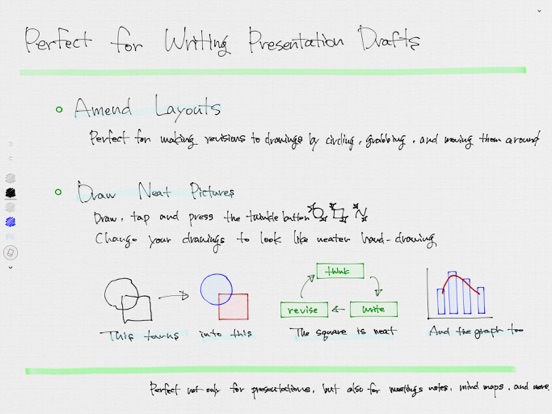 Perfect for Writing Presentation Drafts
Amend Layouts
Perfect for making revisions to drawings by circling, grabbing, and moving them around
Draw Neat Pictures
Draw, tap and press the twinkle button
Change your drawings to look like neater hand-drawing
think
revise
write
This turns into this
The square is neat
And the graph too
Perfect not only for presentations, but also for meetings notes, mind maps, and more